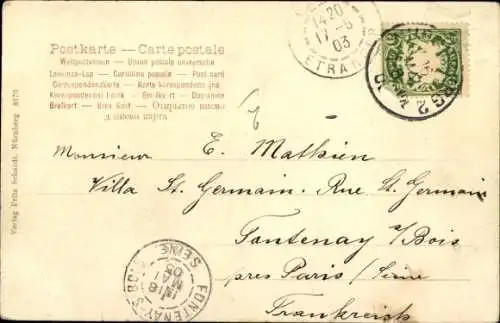 Postkarte — Carte postale
Weltpostverein — Union postale universelle
Levelezö-Lap — Cartolina postale — Post card
Correspondenzkarte — Karta korespondencyjna
Korespondenční lístek — Brefkort — Dopisnice
Brefkort — Открытое письмо
Verlag Fritz Schardt, Nürnberg 8170
14 20
17-5
03
ETRANGER
2
Monsieur E. Mathieu
Villa St. Germain. Rue St. Germain
Fontenay s/Bois
près Paris / Seine
Frankreich
FONTENAY-S-BOIS
SEINE
18
MAI
03